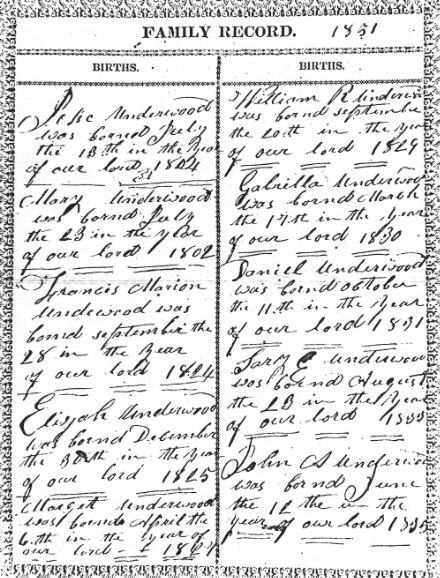 FAMILY RECORD. 1851
BIRTHS.
Underwood
was borned July
the 13th in the Year
of our lord 1804
Mary Underwood
was bornd July
the 23 in the year
of our lord 1802
Francis Marion
Underwood was
bornd september the
28 in the year
of our lord 1824
Elisjah Underwood
was bornd December
the 30th in the Year
of our lord 1825
Underwood
was bornd April the
6th in the year of
our lord
BIRTHS.
William R Underwo
was bornd septembe
the 20th in the Year
of our lord 1829
Gabrilla Underwoo
was bornd March
the 17th in the year
of our lord 1830
Daniel Underwood
was bornd october
the 11th in the Year
of our lord 1831
Underwoo
was bornd August
the 23 in the Year
of our lord
John Underwo
was bornd June
the 12 the in the
year of our lord